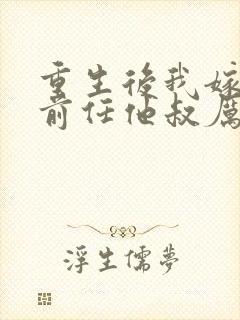 重生後我嫁
前任他叔厲
浮生儒夢